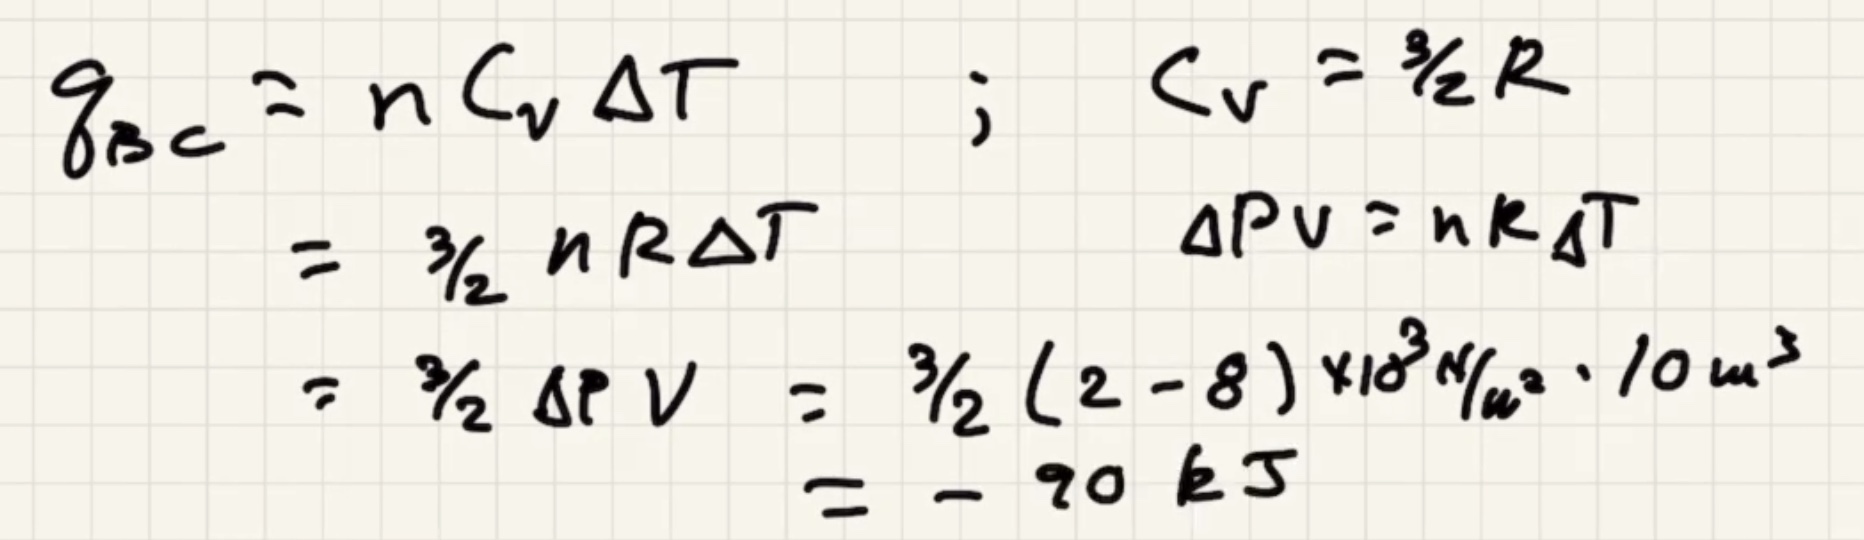 q_BC = n C_v ΔT ; C_v = 3/2 R
= 3/2 n R ΔT ΔP V = n R ΔT
= 3/2 ΔP V = 3/2 (2 - 8) ×10³ N/m² · 10 m³
= - 90 kJ